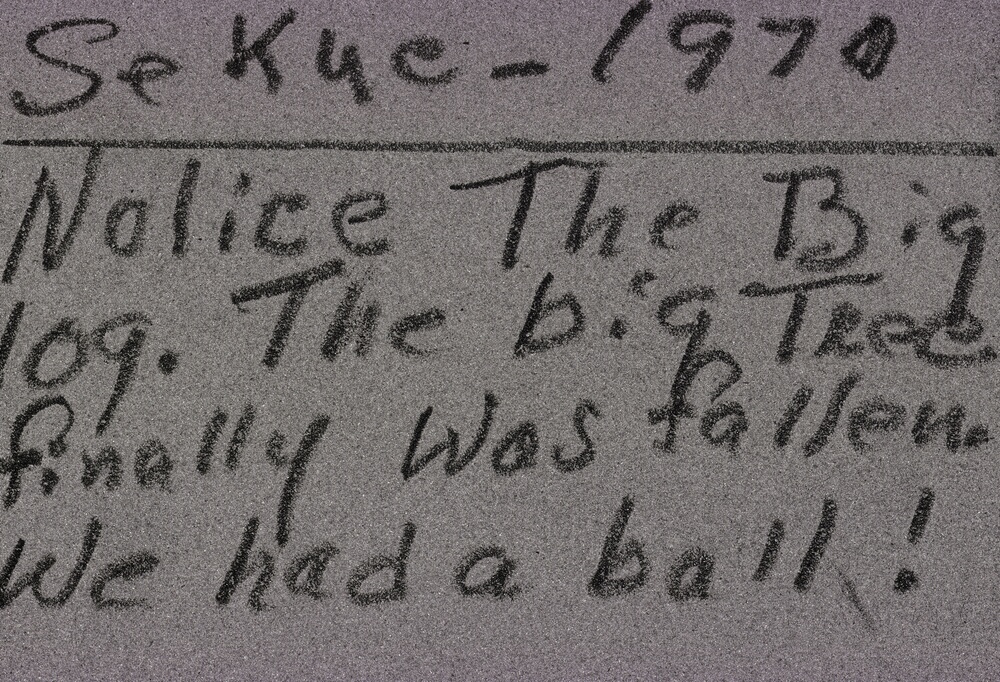 SeKue - 1970
Notice The Big
log. The big Tree
finally was fallen.
We had a ball!